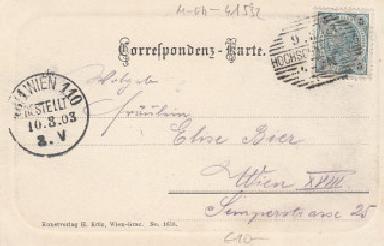 M-GA-41592
Correspondenz-Karte.
HOCHSC
WIEN 110
BESTELLT
10.8.03
8.V
Wolgeb
Fräulein
Elise Beer
Wien XVIII
Simperstrasse 25
Kunstverlag H. Krz, Wien-Graz. No. 1638.
C10-